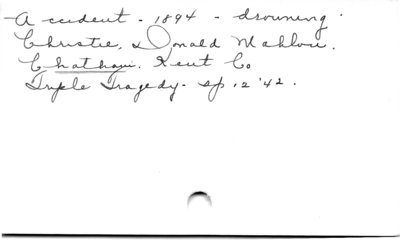 Accident - 1894 - drowning.
Christie, Donald Mahlon.
Chatham. Kent Co
Triple Tragedy - Sp 12 '42.